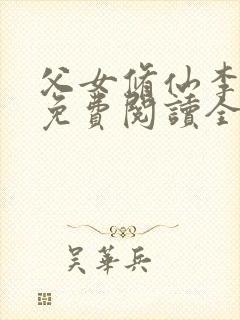 父女脩仙李
免費閱讀全
吴華兵